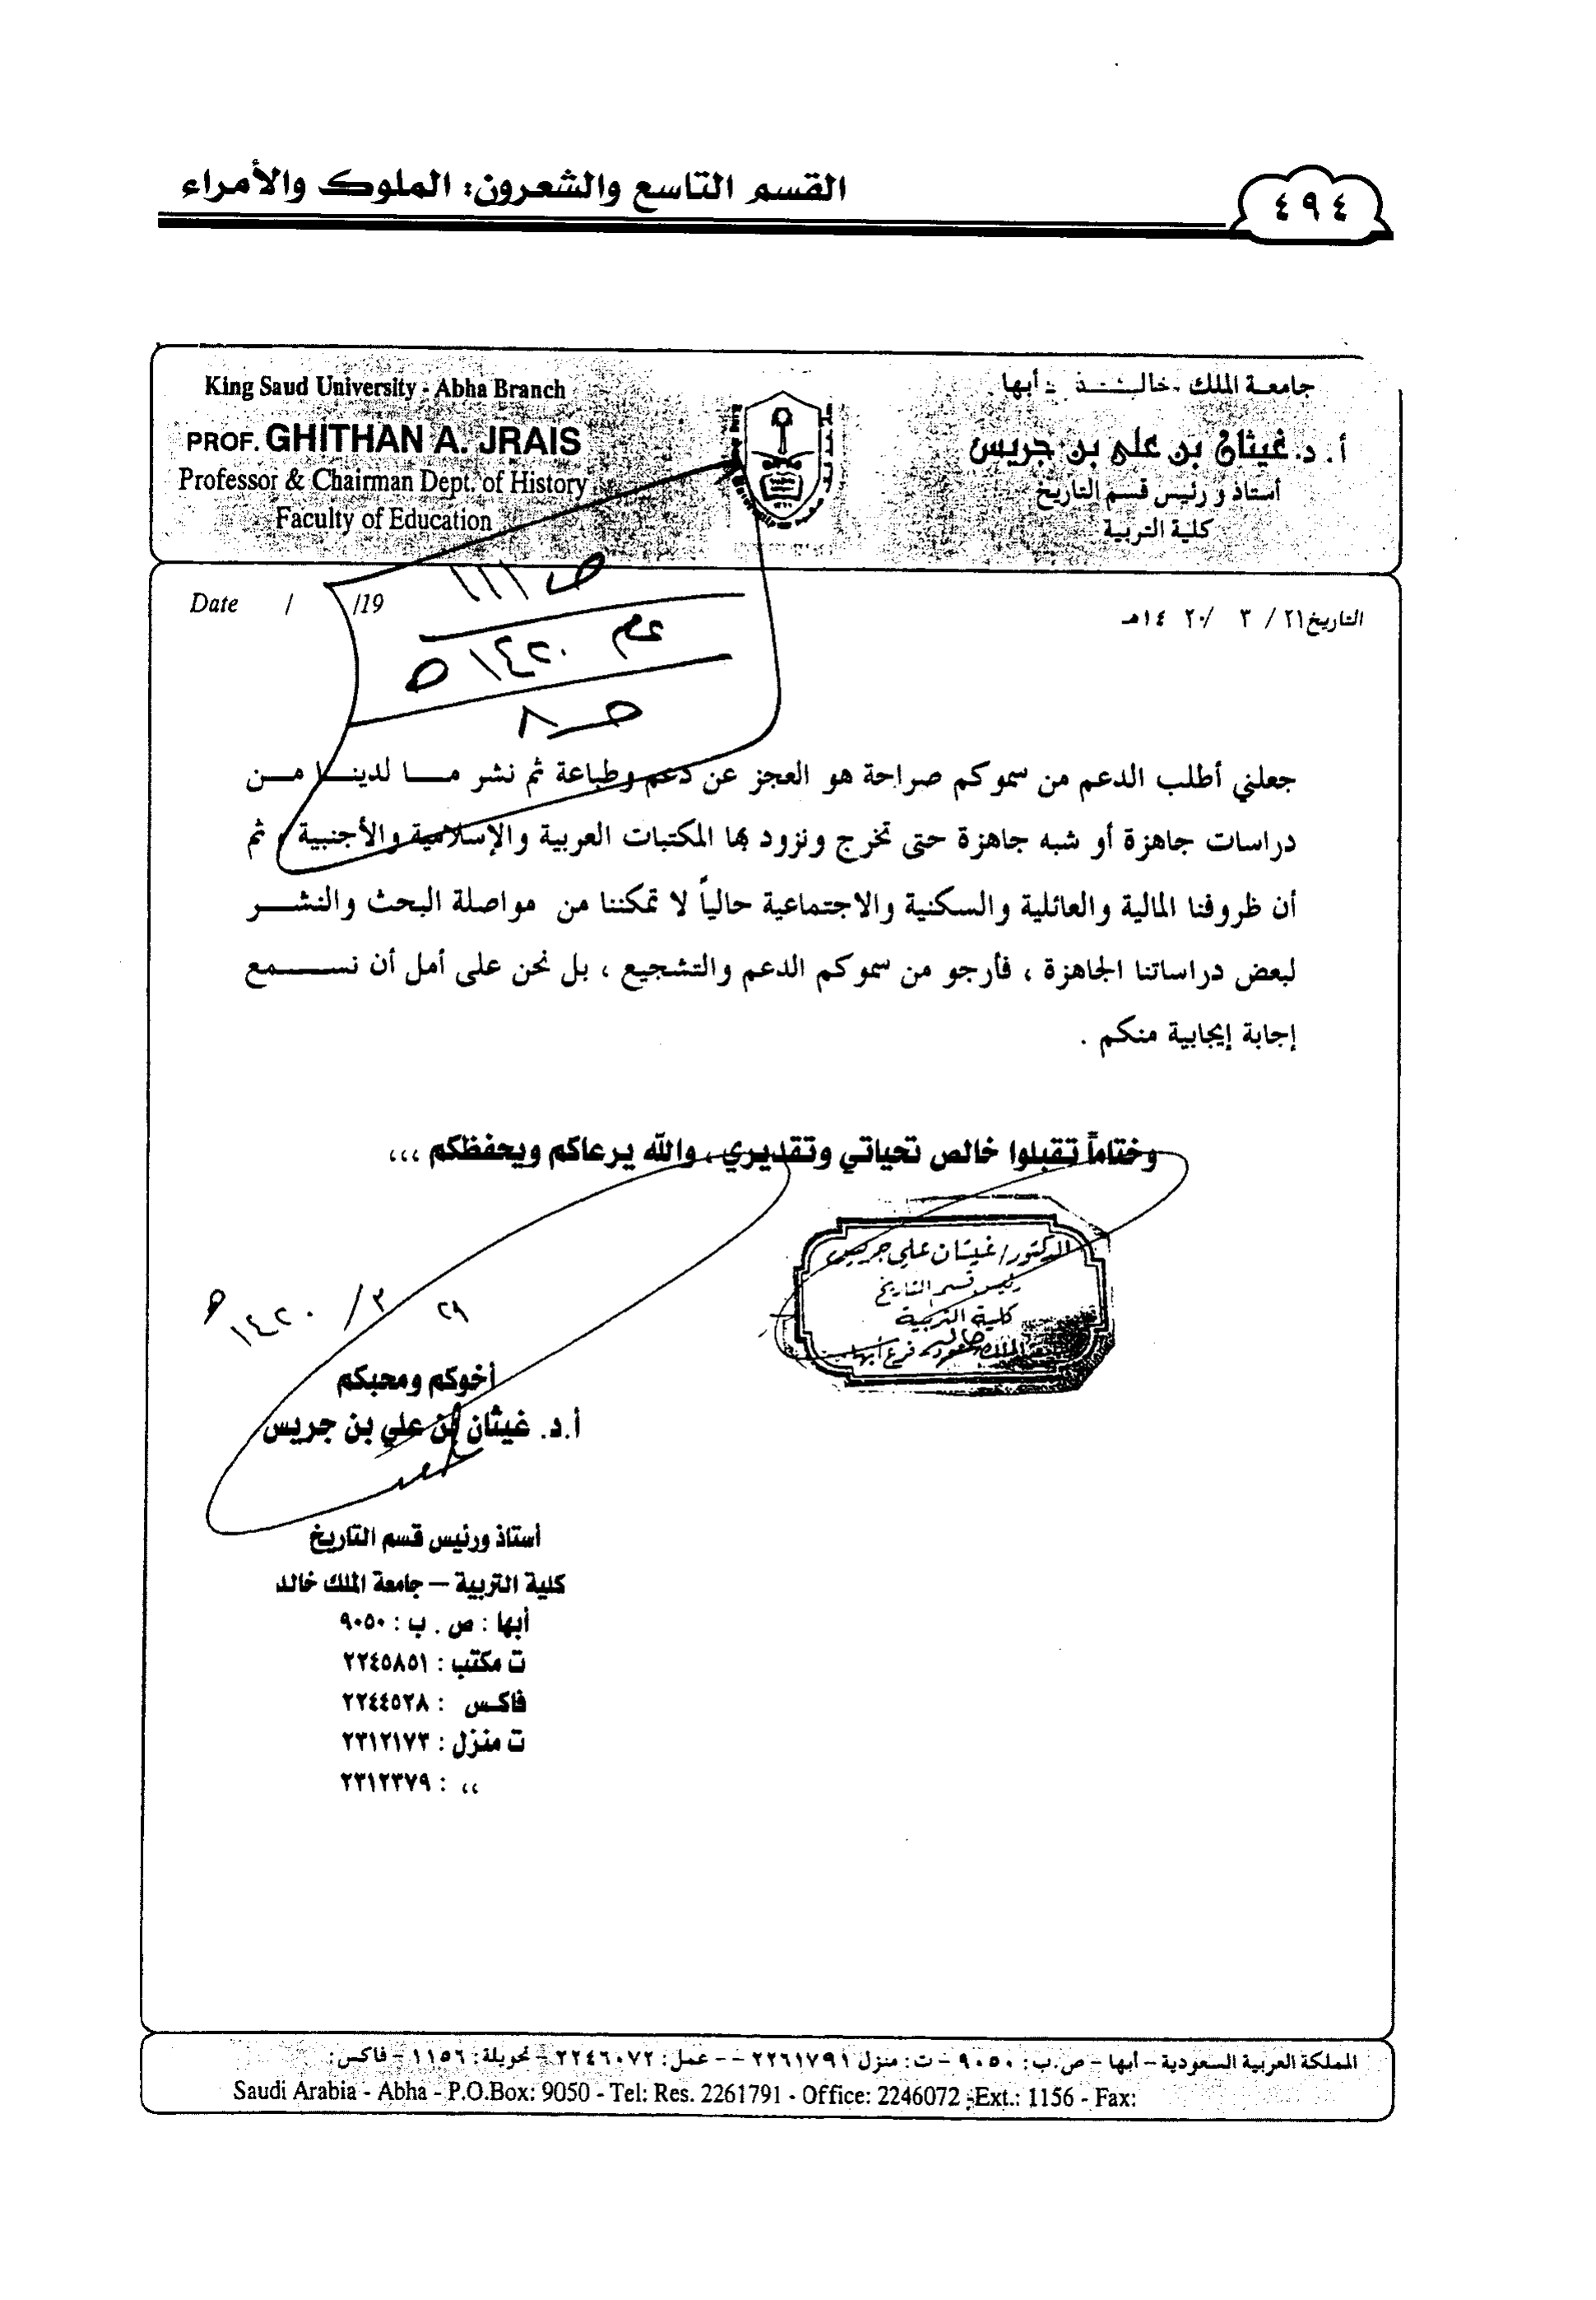 ٤٩٤
القسم التاسع والشعرون: الملوك والأمراء
King Saud University - Abha Branch
PROF. GHITHAN A. JRAIS
Professor & Chairman Dept. of History
Faculty of Education
جامعة الملك خالد - أبها
أ. د. غيثان بن علي بن جريس
أستاذ و رئيس قسم التاريخ
كلية التربية
Date / /19
التاريخ ٢١ / ٣ / ١٤٢٠هـ
ص ١١١
عام ١٤٢٠ هـ
حـ ٨
جعلني أطلب الدعم من سموكم صراحة هو العجز عن دعم وطباعة ثم نشر مـــا لدينـــا مـــن
دراسات جاهزة أو شبه جاهزة حتى تخرج ونزود بها المكتبات العربية والإسلامية والأجنبية ، ثم
أن ظروفنا المالية والعائلية والسكنية والاجتماعية حالياً لا تمكننا من مواصلة البحث والنشـــر
لبعض دراساتنا الجاهزة ، فأرجو من سموكم الدعم والتشجيع ، بل نحن على أمل أن نســـمع
إجابة إيجابية منكم .
وختاماً تقبلوا خالص تحياتي وتقديري ، والله يرعاكم ويحفظكم ،،،
الدكتور/ غيثان علي جريس
رئيس قسم التاريخ
كلية التربية
فرع أبها
٢٩ / ٣ / ١٤٢٠ هـ
أخوكم ومحبكم
أ.د. غيثان بن علي بن جريس
أستاذ ورئيس قسم التاريخ
كلية التربية – جامعة الملك خالد
أبها : ص . ب : ٩٠٥٠
ت مكتب : ٢٢٤٥٨٥١
فاكس : ٢٢٤٤٥٢٨
ت منزل : ٢٣١٢١٧٣
،، : ٢٣١٢٣٧٩
المملكة العربية السعودية – أبها – ص.ب: ٩٠٥٠ – ت: منزل ٢٢٦١٧٩١ – – عمل: ٢٢٤٦٠٧٢ – تحويلة: ١١٥٦ – فاكس:
Saudi Arabia - Abha - P.O.Box: 9050 - Tel: Res. 2261791 - Office: 2246072 - Ext.: 1156 - Fax: